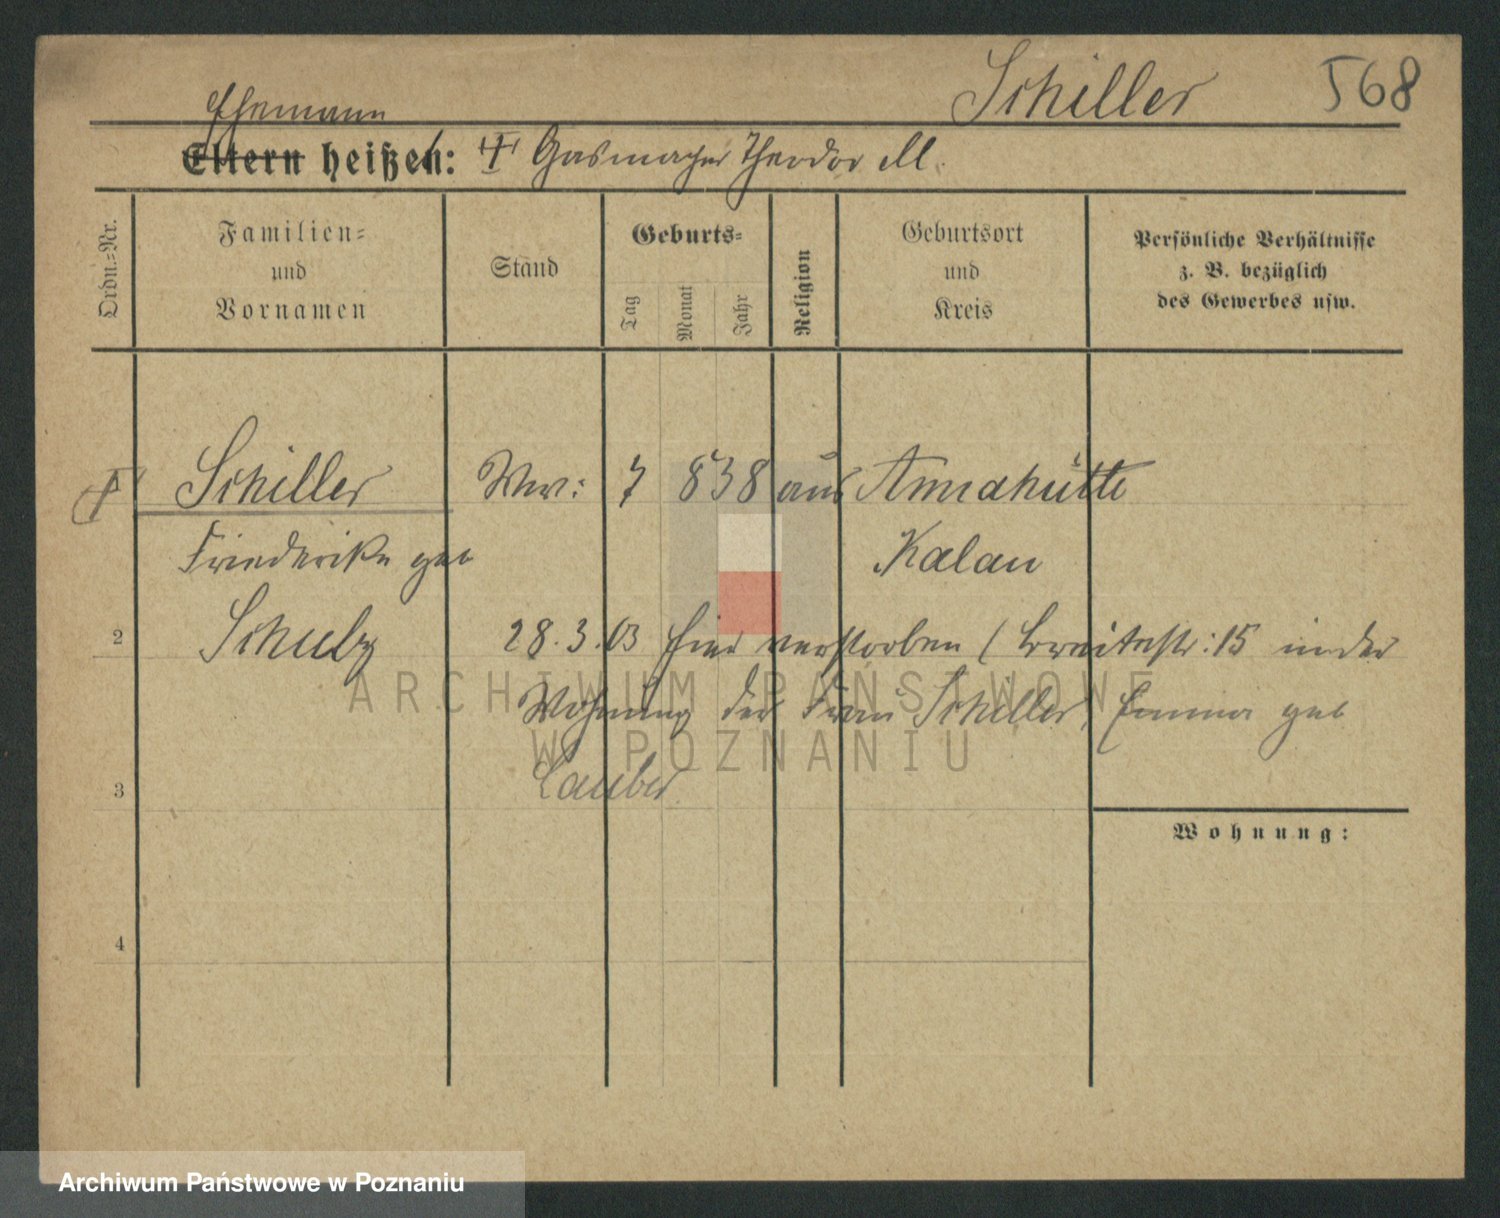 Schiller 568
Ehemann
Eltern heißen: † Theodor M.
Ordn.-Nr.
Familien-
und
Vornamen
Stand
Geburts-
Tag
Monat
Jahr
Religion
Geburtsort
und
Kreis
Persönliche Verhältnisse
z. B. bezüglich
des Gewerbes usw.
† Schiller Ww: 7 8 38 aus Annahütte
Friederike geb Kalau
2 Schulz 28.3.03 hier verstorben ( Breitestr: 15 in der
Wohnung der Frau Schiller, Emma geb
3 Lauber
Wohnung:
4
ARCHIWUM PAŃSTWOWE
W POZNANIU
Archiwum Państwowe w Poznaniu